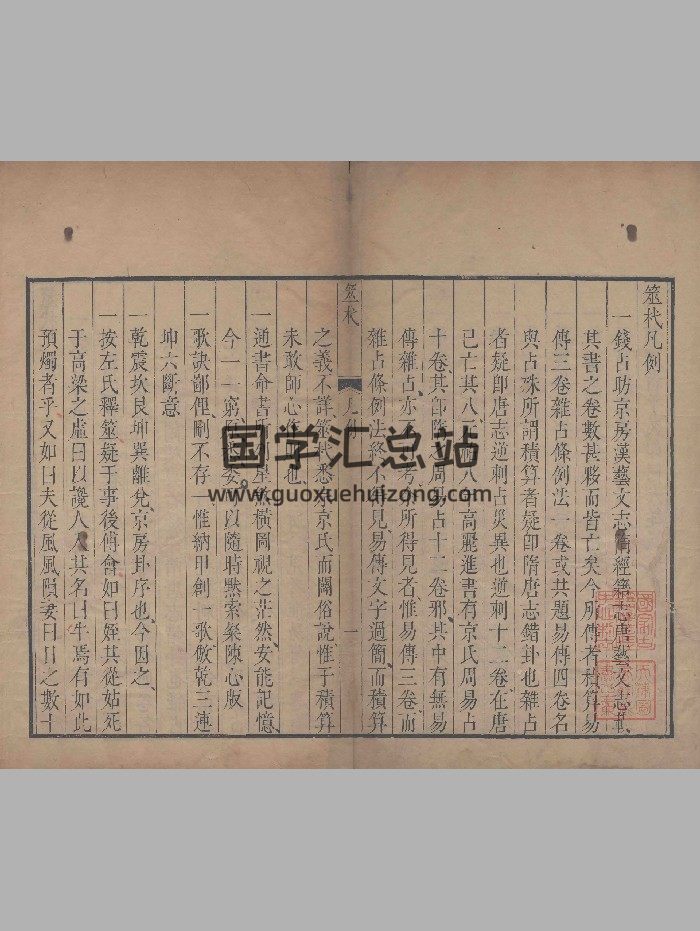 筮杙凡例
一錢占昉京房漢藝文志隋經籍志唐藝文志載
其書之卷數甚夥而皆亡矣今所傳者積算易
傳三卷雜占條例法一卷或共題易傳四卷名
與占殊所謂積算者疑卽隋唐志錯卦也雜占
者疑卽唐志逆刺占災異也逆刺十二卷在唐
已亡其八元祐八年高麗進書有京氏周易占
十卷其卽隋志周易占十二卷邪其中有無易
傳雜占亦不可考今所得見者惟易傳三卷而
雜占條例法終不得見易傳文字過簡而積算
筮杙
凡例
一
之義不詳筮杙悉宗京氏而闢俗說惟于積算
未敢師心
也
一通書命書所
星煞橫圖視之茫然安能記憶
今一一窮
委
以隨時默索粲陳心版
一歌訣鄙俚刪不存一惟納甲創一歌倣乾三連
坤六斷意
一乾震坎艮坤巽離兌京房卦序也今因之
一按左氏釋筮疑于事後傅會如曰姪其從姑死
于高梁之虛曰以讒人入其名曰牛焉有如此
預燭者乎又如曰夫從風風隕妻曰日之數十
国学汇总站
www.guoxuehuizong.com